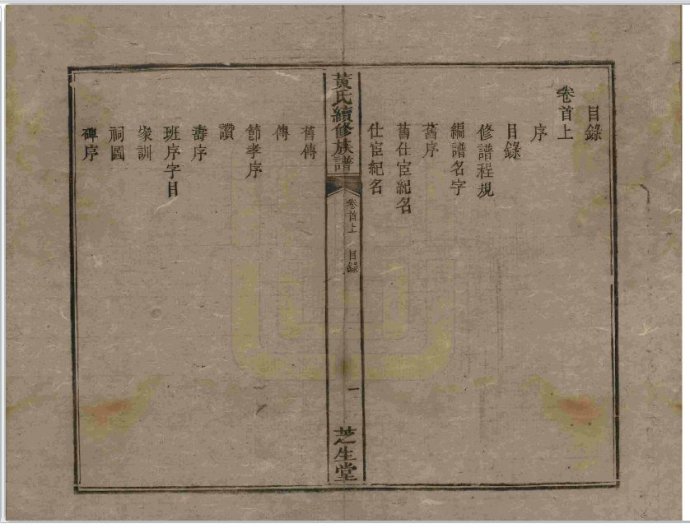 目錄
卷首上
序
目錄
修譜程規
編譜名字
舊序
舊仕宦紀名
仕宦紀名
黃氏續修族譜
卷首上
目錄
一
芝生堂
舊傳
傳
節孝序
讚
壽序
班序字目
家訓
祠圖
碑序